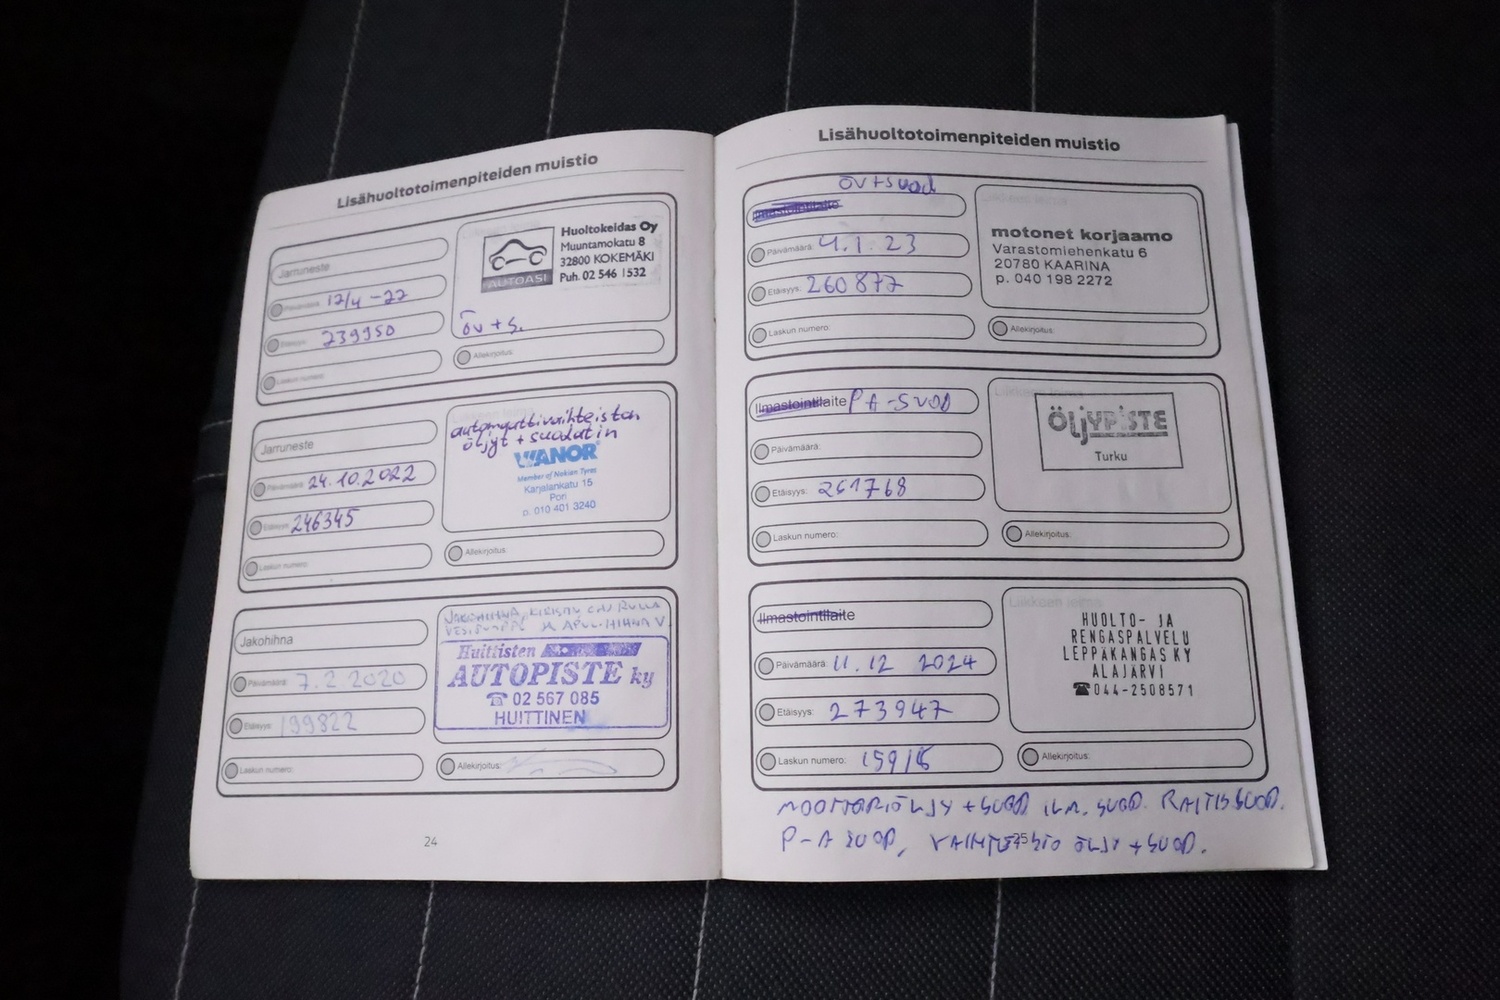 Lisähuoltotoimenpiteiden muistio
Jarruneste
Päivämäärä: 12/4 -22
Etäisyys: 239950
Laskun numero:
Huoltokeidas Oy
Muuntamokatu 8
32800 KOKEMÄKI
Puh. 02 546 1532
AUTOASI
ÖV + S.
Allekirjoitus:
Jarruneste
Päivämäärä: 24.10.2022
Etäisyys: 246345
Laskun numero:
automaattivaihteiston
öljyt + suodatin
VIANOR
Member of Nokian Tyres
Karjalankatu 15
Pori
p. 010 401 3240
Allekirjoitus:
Jakohihna
Päivämäärä: 7.2.2020
Etäisyys: 199822
Laskun numero:
JAKOHIHNA, KIRISTIN, OHJ RULLA
VESIPUMPPU JA APUL.HIHNA V.
Huittisten
AUTOPISTE ky
☎ 02 567 085
HUITTINEN
Allekirjoitus:
24
Lisähuoltotoimenpiteiden muistio
ÖV+SUOD
Päivämäärä: 4.1.23
Etäisyys: 260877
Laskun numero:
Leikkeen leima
motonet korjaamo
Varastomiehenkatu 6
20780 KAARINA
p. 040 198 2272
Allekirjoitus:
Ilmastointilaite PA-SUOD
Päivämäärä:
Etäisyys: 261768
Laskun numero:
ÖLJYPISTE
Turku
Allekirjoitus:
Ilmastointilaite
Päivämäärä: 11.12 2024
Etäisyys: 273947
Laskun numero: 15916
HUOLTO- JA
RENGASPALVELU
LEPPÄKANGAS KY
ALAJÄRVI
☎044-2508571
Allekirjoitus:
MOOTTORIÖLJY + SUOD ILM. SUOD. RAITISSUOD.
P-A SUOD, VAIHTEISTO ÖLJY + SUOD.
25